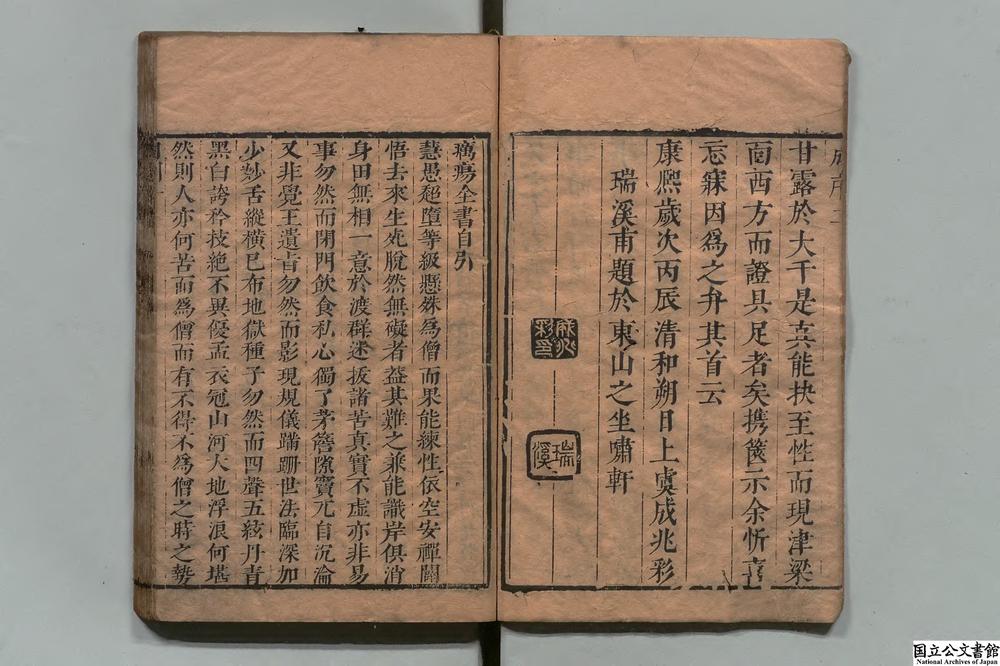 甘露於大千是真能抉至性而現津梁
面西方而證具足者矣携箋示余忻喜
忘寐因爲之弁其首云
康熈歲次丙辰清和朔日上虞成兆彩
瑞溪甫題於東山之坐嘯軒
成兆彩印
瑞溪
癘瘍全書自引
慧愚超墮等級懸殊爲僧而果能練性依空安禪關
悟去來生死脫然無礙者益其難之兼能識岸俱消
身田無相一意於渡群迷拔諸苦真實不虛亦非易
事勿然而閉門飮食私心獨了茅簷隙竇亢自沉淪
又非覺王遺旨勿然而影現規儀蹣跚世法臨深加
少妙舌縱橫已布地獄種子勿然而四聲五絃丹青
黑白誇矜技絶不異優孟衣冠山河大地浮浪何堪
然則人亦何苦而爲僧而有不得不爲僧之時之勢
国立公文書館
National Archives of Japan